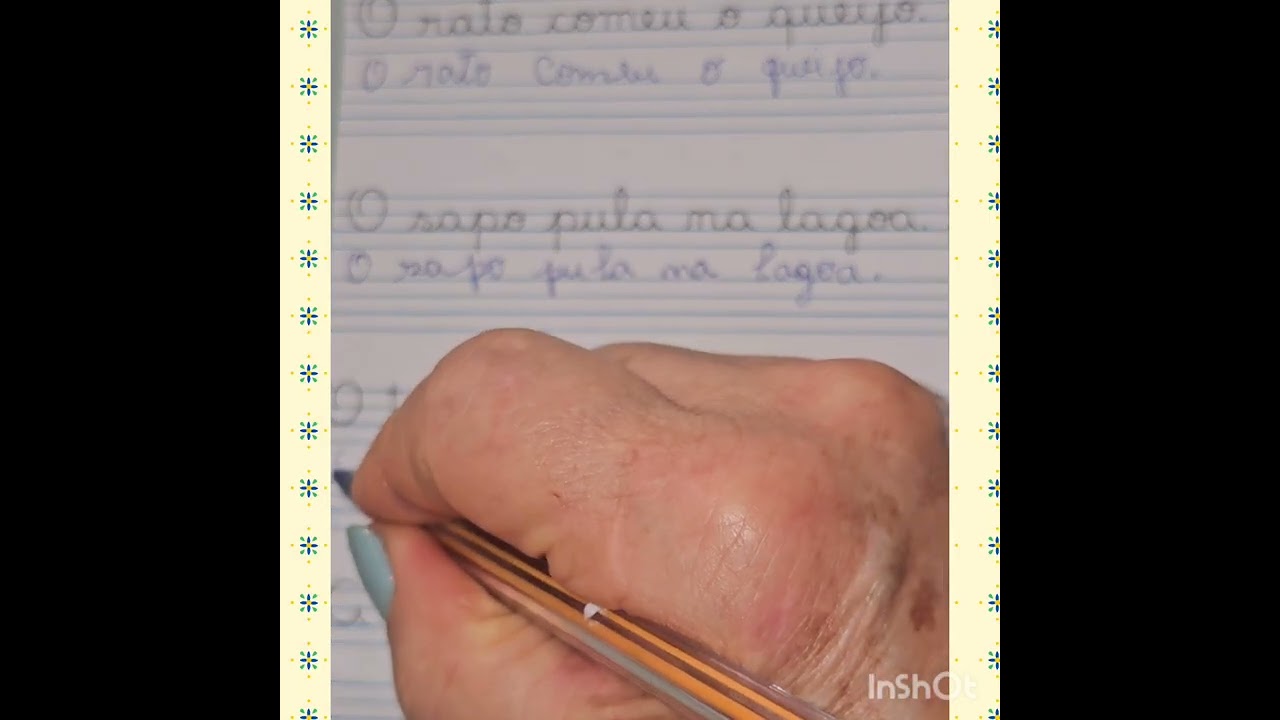 O rato comeu o queijo.
O rato comeu o queijo.
O sapo pula na lagoa.
O sapo pula na lagoa.
O
InShOt